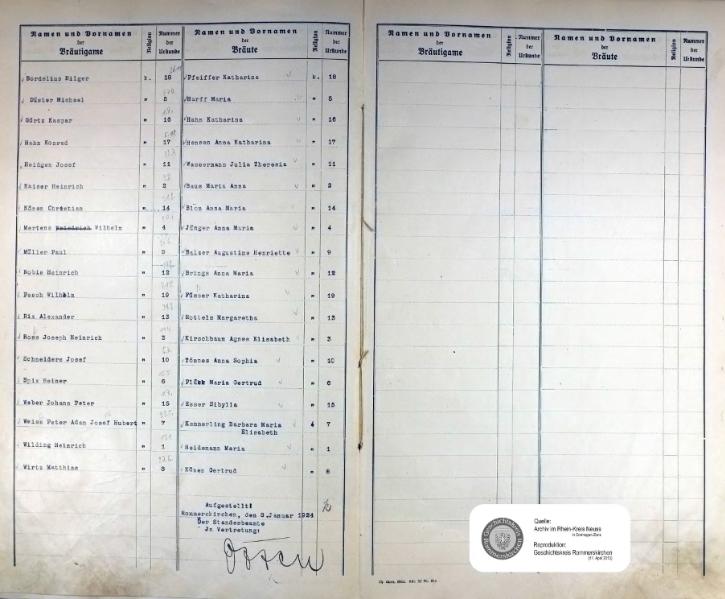 Namen und Vornamen der Bräutigame Religion Nummer der Urkunde Namen und Vornamen der Bräute Religion Nummer der Urkunde
Bordelius Hilger k. 18 Pfeiffer Katharina k. 18
Düster Michael " 5 Murff Maria " 5
Görtz Kaspar " 16 Hahn Katharina " 16
Hahn Konrad " 17 Hensen Anna Katharina " 17
Heidgen Josef " 11 Wassermann Julia Theresia " 11
Kaiser Heinrich " 2 Saus Maria Anna " 2
Kösen Christian " 14 Blon Anna Maria " 14
Mertens Heinrich Wilhelm " 4 Jünger Anna Maria " 4
Müller Paul " 9 Balzer Augustine Henriette " 9
Nobis Heinrich " 12 Brings Anna Maria " 12
Pesch Wilhelm " 19 Füsser Katharina " 19
Rix Alexander " 13 Hottels Margaretha " 13
Ross Joseph Heinrich " 3 Kirschbaum Agnes Elisabeth " 3
Schneiders Josef " 10 Tönnes Anna Sophia " 10
Spix Heiner " 6 Flück Maria Gertrud " 6
Weber Johann Peter " 15 Esser Sibylla " 15
Weiss Peter Adam Josef Hubert " 7 Kemmerling Barbara Maria " 7
Elisabeth
Wilding Heinrich " 1 Heidemann Maria " 1
Wirtz Matthias " 8 Köses Gertrud " 8
Aufgestellt:
Rommerskirchen, den 3.Januar 1924
Der Standesbeamte
In Vertretung:
Namen und Vornamen der Bräutigame Religion Nummer der Urkunde Namen und Vornamen der Bräute Religion Nummer der Urkunde
Quelle:
Archiv im Rhein-Kreis Neuss
in Dormagen-Zons
Reproduktion:
Geschichtskreis Rommerskirchen